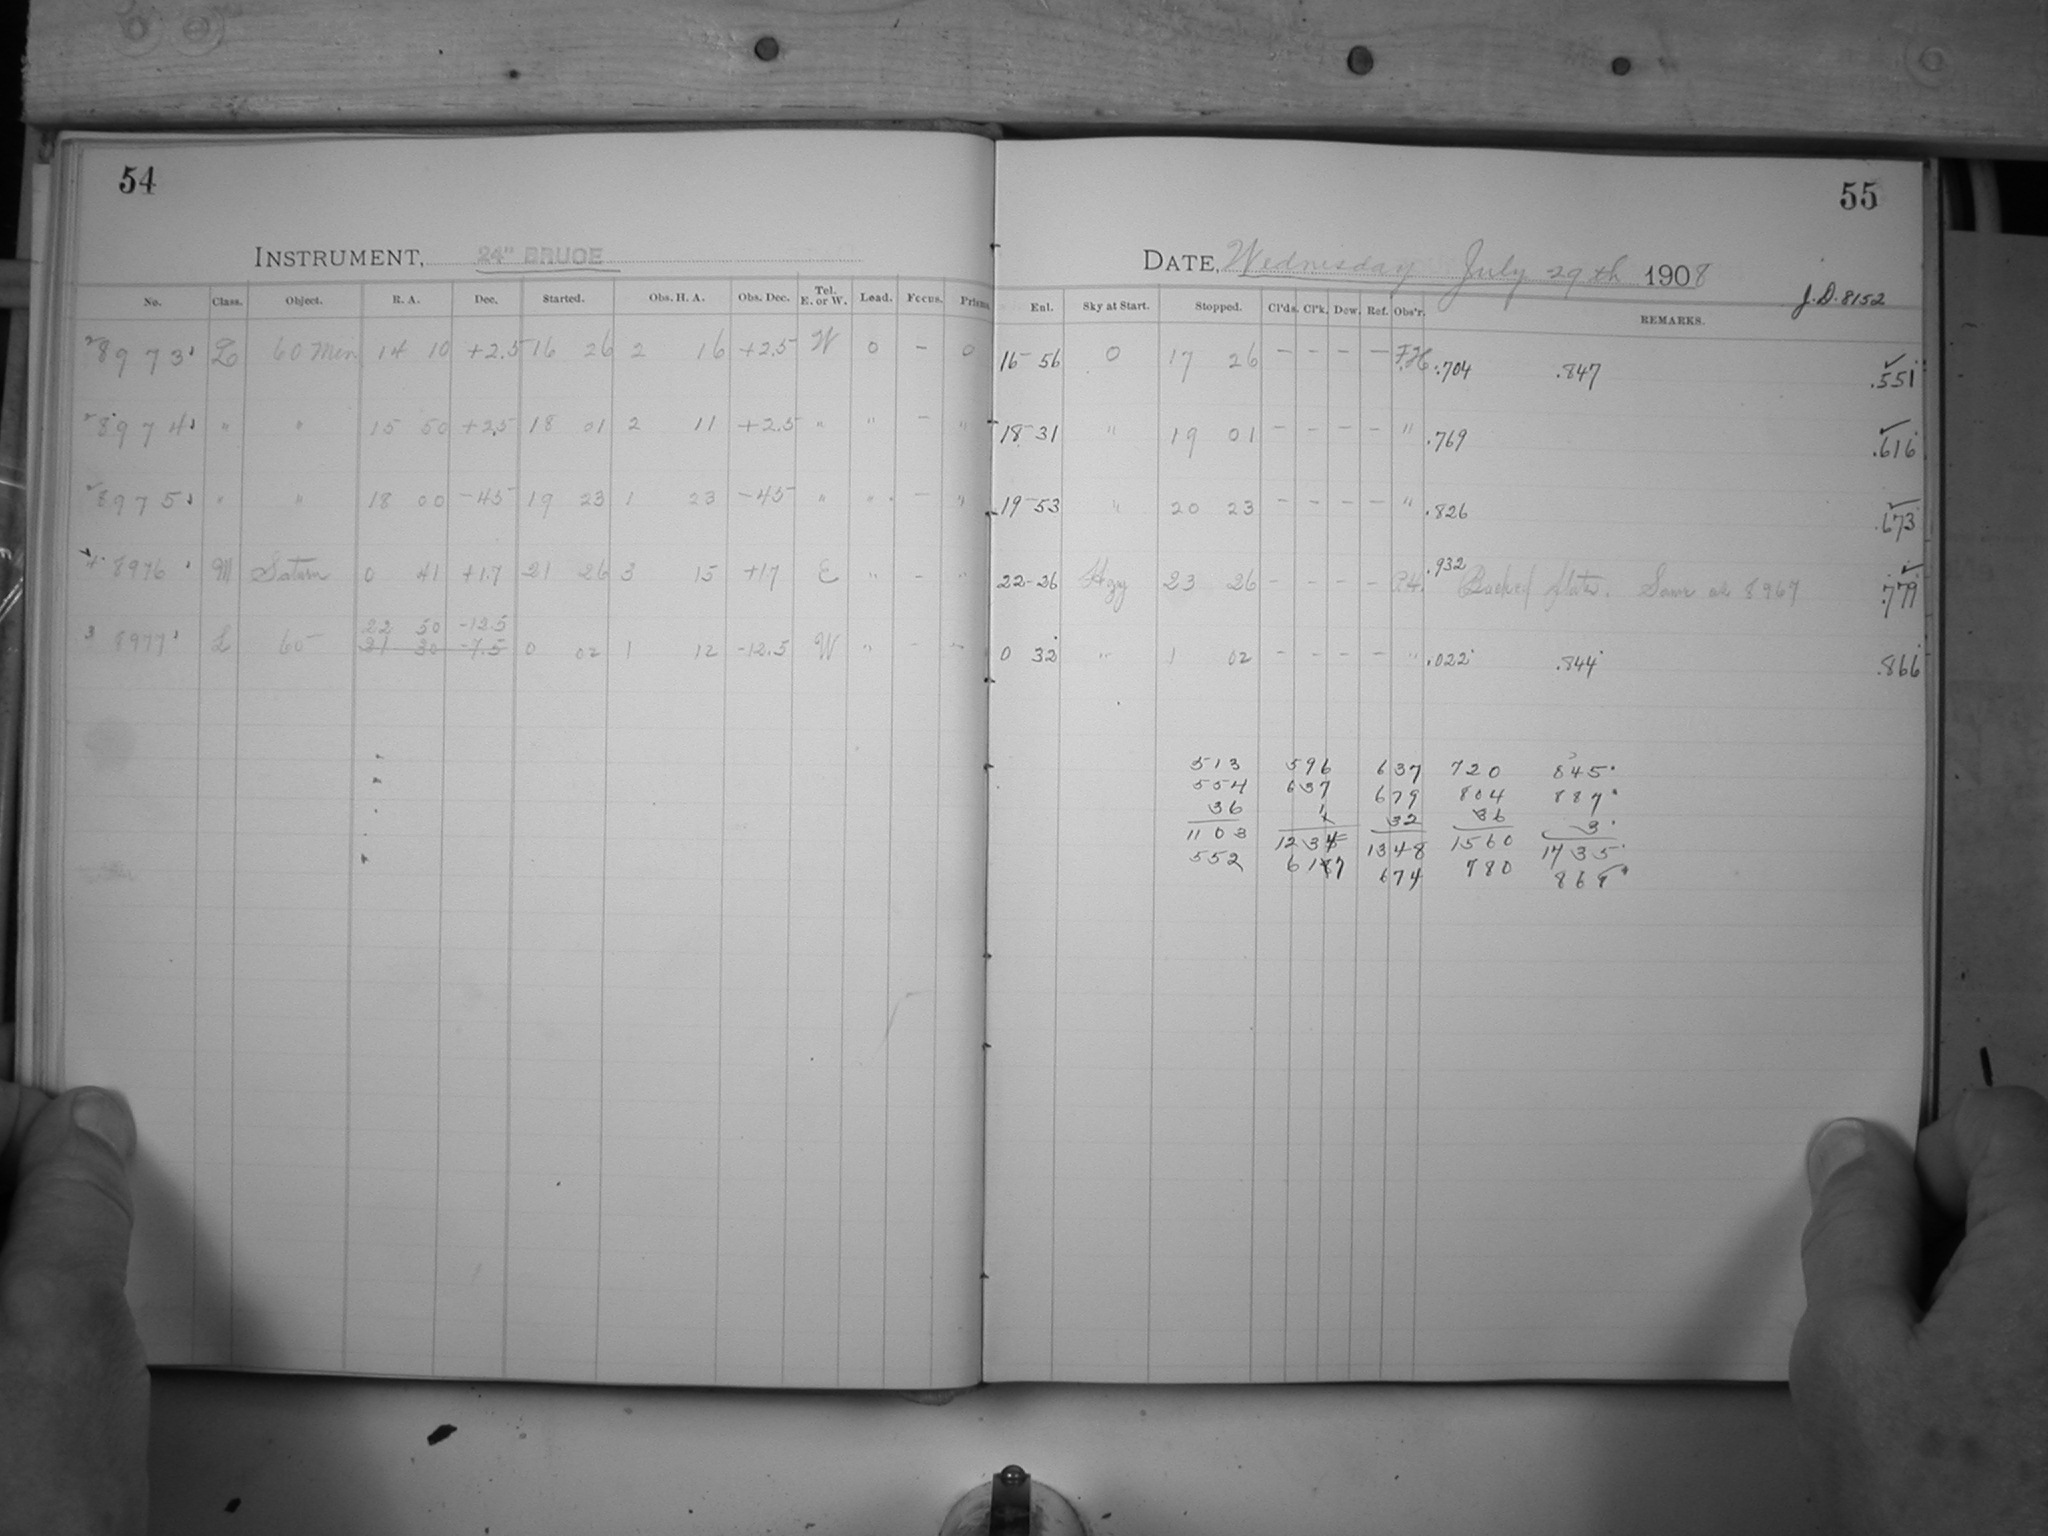 54
INSTRUMENT, 24" BRUCE
No. Class. Object. R. A. Dec. Started. Obs. H. A. Obs. Dec. Tel. E. or W. Lead. Focus. Prisms.
8973 L 60 Min 14 10 +2.5 16 26 2 16 +2.5 W 0 - 0
8974 " " 15 50 +2.5 18 01 2 11 +2.5 " " - "
8975 " " 18 00 -45 19 23 1 23 -45 " " - "
8976 M Saturn 0 41 +1.7 21 26 3 15 +1.7 E " - "
22 50 -12.5
3 8977 L 60 21 30 -7.5 0 02 1 12 -12.5 W " - "
55
DATE, Wednesday July 29th 1908
J.D. 8152
Enl. Sky at Start. Stopped. Cl'ds. Cl'k. Dew. Ref. Obs'r. REMARKS.
16-56 0 17 26 - - - - F.H. .704 .847 .551
18-31 " 19 01 - - - - " .769 .616
19-53 " 20 23 - - - - " .826 .673
22-26 Hazy 23 26 - - - - .932 Backed plate. Same as 8967 .779
0 32 " 1 02 - - - - " .022 .844 .866
513 596 637 720 845
554 637 679 804 887
36 1 32 36 3
1103 1234 1348 1560 1735
552 617 674 780 868